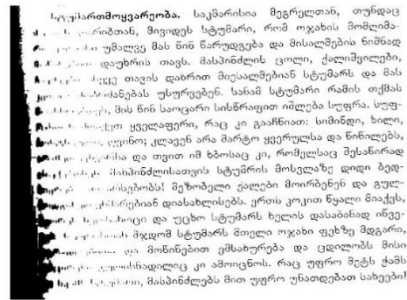 სტუმართმოყვარეობა. საკმარისია მეგრელთან, თუნდაც
მივიდეს სტუმარი, რომ ოჯახის მომღიმა-
უმალვე მას წინ წარუდგება და მისალმების ნიშნად
დაუხრის თავს. მასპინძლის ცოლი, ქალიშვილები,
თავის დახრით მიესალმებიან სტუმარს და მას
უსურვებენ. სანამ სტუმარი რამის თქმას
მის წინ საოცარი სისწრაფით იშლება სუფრა. სუფ-
ყველაფერი, რაც კი გააჩნიათ: სიმინდი, ხილი,
ღვინო; კლავენ არა მარტო ყვერულსა და წიწილებს,
და თვით იმ ხბოსაც კი, რომელსაც შესაწირად
მასპინძლისათვის სტუმრის მოსვლაზე დიდი ბედ-
მეზობელი ქალები მოირბენენ და გულ-
დიასახლისებს. ერთს კოკით წყალი მიაქვს,
და უცხო სტუმარს ხელის დასაბანად იწვე-
მჯდომ სტუმარს მთელი ოჯახი ფეხზე მდგარი,
და მოწიწებით ემსახურება და ცდილობს მისი
კი ამოიცნოს. რაც უფრო მეტს ჭამს
მასპინძლებს მით უფრო უნათდებათ სახეები!